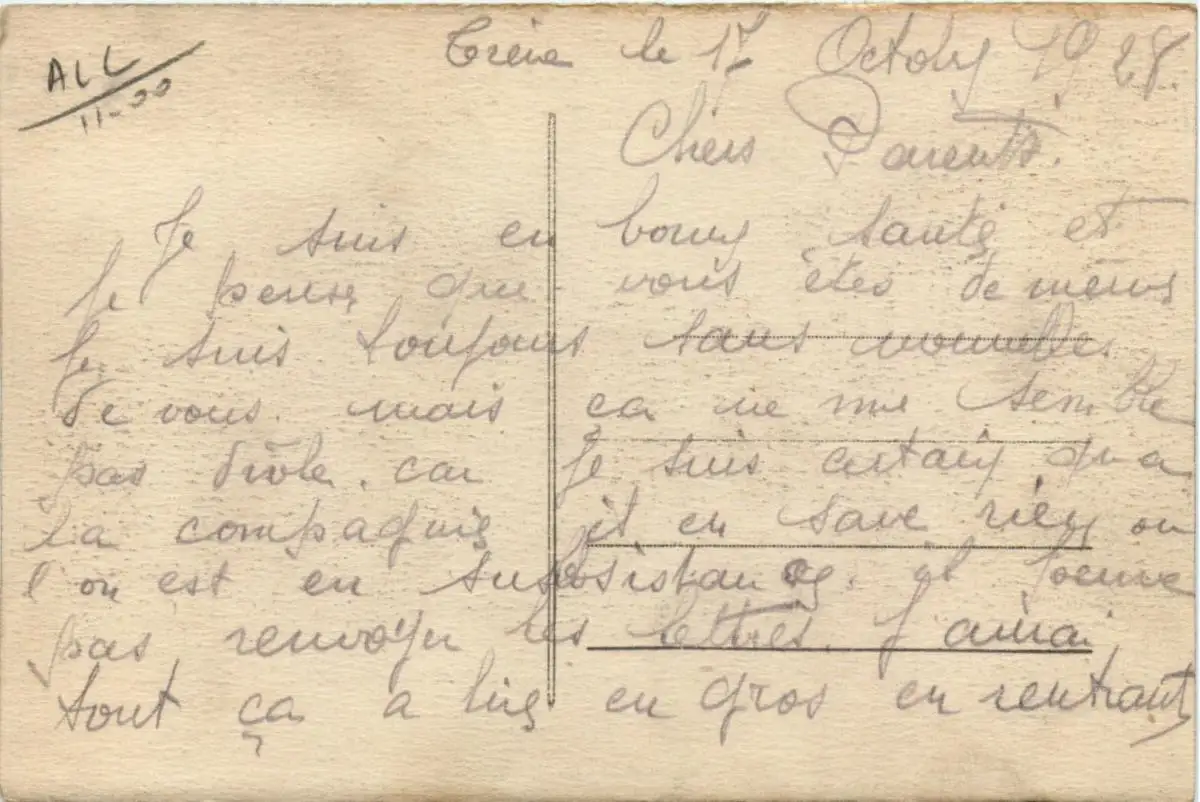 ALL
11-00
le 17 Octobre 1928.
Chers Parents.
Je suis en bonne santé et
je pense que vous êtes de même
je suis toujours sans nouvelles
de vous. mais ça ne me semble
pas drôle. car je suis certain qu a
la compagnie il en save rien ou
l on est en subsistance. il peuve
pas renvoyer les lettres. J aurai
tout ça a lire en gros en rentrant